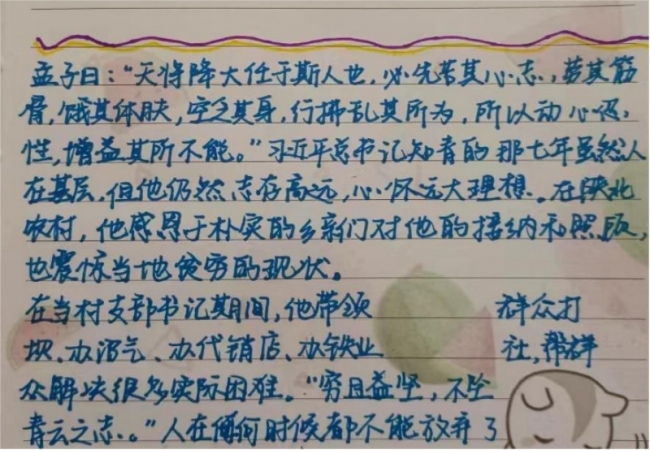 孟子曰：“天将降大任于斯人也，必先苦其心志，劳其筋
骨，饿其体肤，空乏其身，行拂乱其所为，所以动心忍
性，增益其所不能。”习近平总书记知青的那七年虽然人
在基层，但他仍然志存高远，心怀远大理想。在陕北
农村，他感恩于朴实的乡亲们对他的接纳和照顾，
也震惊当地贫穷的现状。
在当村支部书记期间，他带领 群众打
坝、办沼气、办代销店、办铁业 社，帮群
众解决很多实际困难。“穷且益坚，不坠
青云之志。”人在何时候都不能放弃了